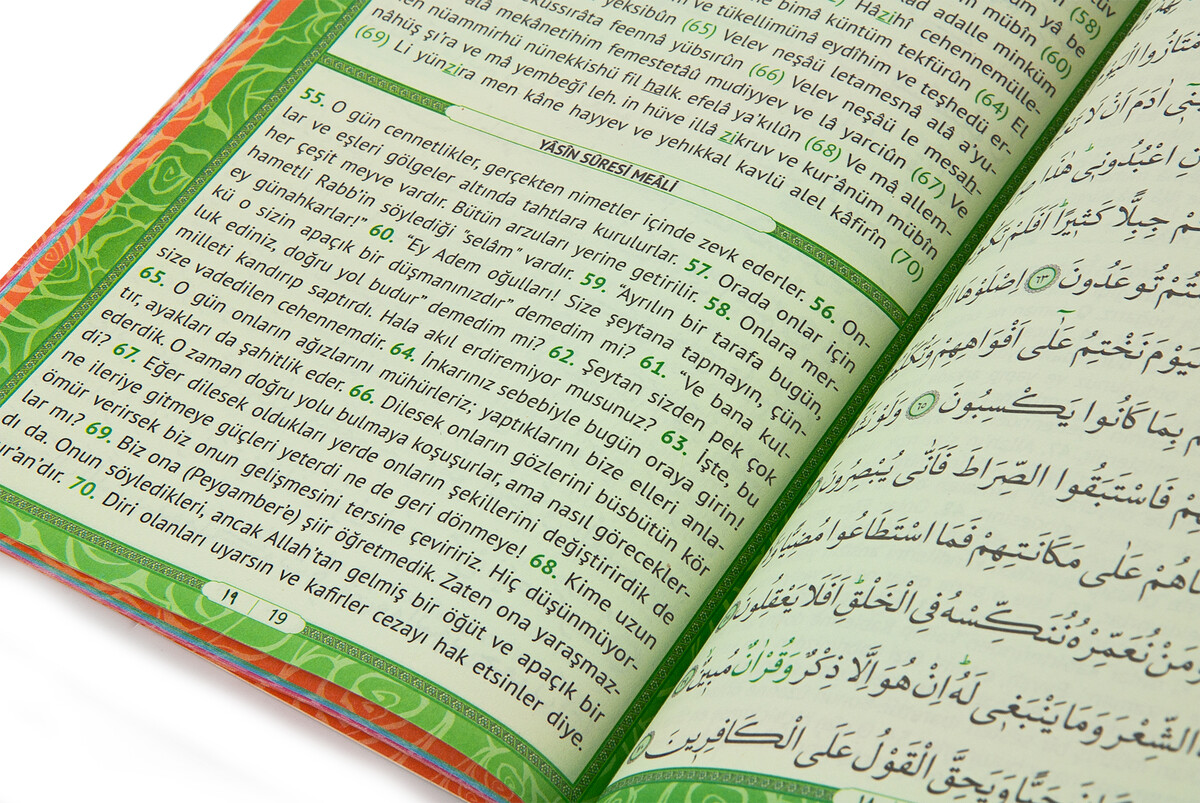 yâ be
mübîn (60)
ad adalle minküm
Hâzihî cehennemülle-
bimâ küntüm tekfürûn (64) El
ve tükellimünâ eydîhim ve teşhedü er-
yeksibûn (65) Velev neşâü letamesnâ alâ a'yu-
feennâ yübsırûn (66) Velev neşâü le mesah-
alâ mekânetihim femestetaû mudiyyev ve lâ yarciûn (67) Ve
nüammirhü nünekkishü fil halk. efelâ ya'kılûn (68) Ve mâ allem-
nâhüş şi'ra ve mâ yembeğî leh. in hüve illâ zikruv ve kur'ânüm mübîn
(69) Li yünzira men kâne hayyev ve yehıkkal kavlü alel kâfirîn (70)
YÂSÎN SÛRESİ MEÂLİ
55. O gün cennetlikler, gerçekten nimetler içinde zevk ederler. 56. On-
lar ve eşleri gölgeler altında tahtlara kurulurlar. 57. Orada onlar için
her çeşit meyve vardır. Bütün arzuları yerine getirilir. 58. Onlara mer-
hametli Rabb'in söylediği "selâm" vardır. 59. "Ayrılın bir tarafa bugün,
ey günahkarlar!" 60. "Ey Adem oğulları! Size şeytana tapmayın, çün-
kü o sizin apaçık bir düşmanınızdır" demedim mi? 61. "Ve bana kul-
luk ediniz, doğru yol budur" demedim mi? 62. Şeytan sizden pek çok
milleti kandırıp saptırdı. Hala akıl erdiremiyor musunuz? 63. İşte, bu
size vadedilen cehennemdir. 64. İnkarınız sebebiyle bugün oraya girin!
65. O gün onların ağızlarını mühürleriz; yaptıklarını bize elleri anla-
tır, ayakları da şahitlik eder. 66. Dilesek onların gözlerini büsbütün kör
ederdik. O zaman doğru yolu bulmaya koşuşurlar, ama nasıl görecekler-
di? 67. Eğer dilesek oldukları yerde onların şekillerini değiştirirdik de
ne ileriye gitmeye güçleri yeterdi ne de geri dönmeye! 68. Kime uzun
ömür verirsek biz onun gelişmesini tersine çeviririz. Hiç düşünmüyor-
lar mı? 69. Biz ona (Peygamber'e) şiir öğretmedik. Zaten ona yaraşmaz-
dı da. Onun söyledikleri, ancak Allah'tan gelmiş bir öğüt ve apaçık bir
ur'an'dır. 70. Diri olanları uyarsın ve kafirler cezayı hak etsinler diye.
١٩ 19
اٰدَمَ اَنْ لَا
اعْبُدُونِي هٰذَا
جِبِلًّا كَثِيرًا اَفَلَمْ
تُوعَدُونَ ﴿٦٣﴾ اِصْلَوْهَا
نَخْتِمُ عَلٰٓى اَفْوَاهِهِمْ
بِمَا كَانُوا يَكْسِبُونَ ﴿٦٥﴾ وَلَوْ
فَاسْتَبَقُوا الصِّرَاطَ فَاَنّٰى يُبْصِرُونَ
عَلٰى مَكَانَتِهِمْ فَمَا اسْتَطَاعُوا
وَمَنْ نُعَمِّرْهُ نُنَكِّسْهُ فِي الْخَلْقِ اَفَلَا يَعْقِلُونَ
الشِّعْرَ وَمَا يَنْبَغِي لَهُ اِنْ هُوَ اِلَّا ذِكْرٌ وَقُرْاٰنٌ مُبِينٌ
وَيَحِقَّ الْقَوْلُ عَلَى الْكَافِرِينَ